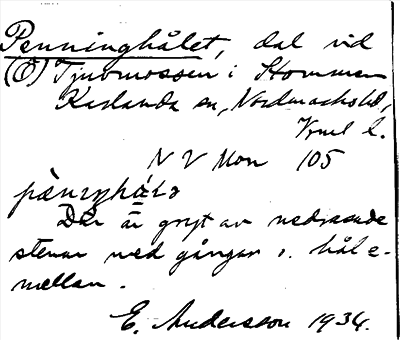 Penninghålet, dal vid
(Ö) Tjuvmossen i Stommen
Karlanda sn, Nordmarks hd,
Vrml l.
N V Mon 105
Där är gryt av nedrasade
stenar med gångar o. hål e-
mellan.
E. Andersson 1934.